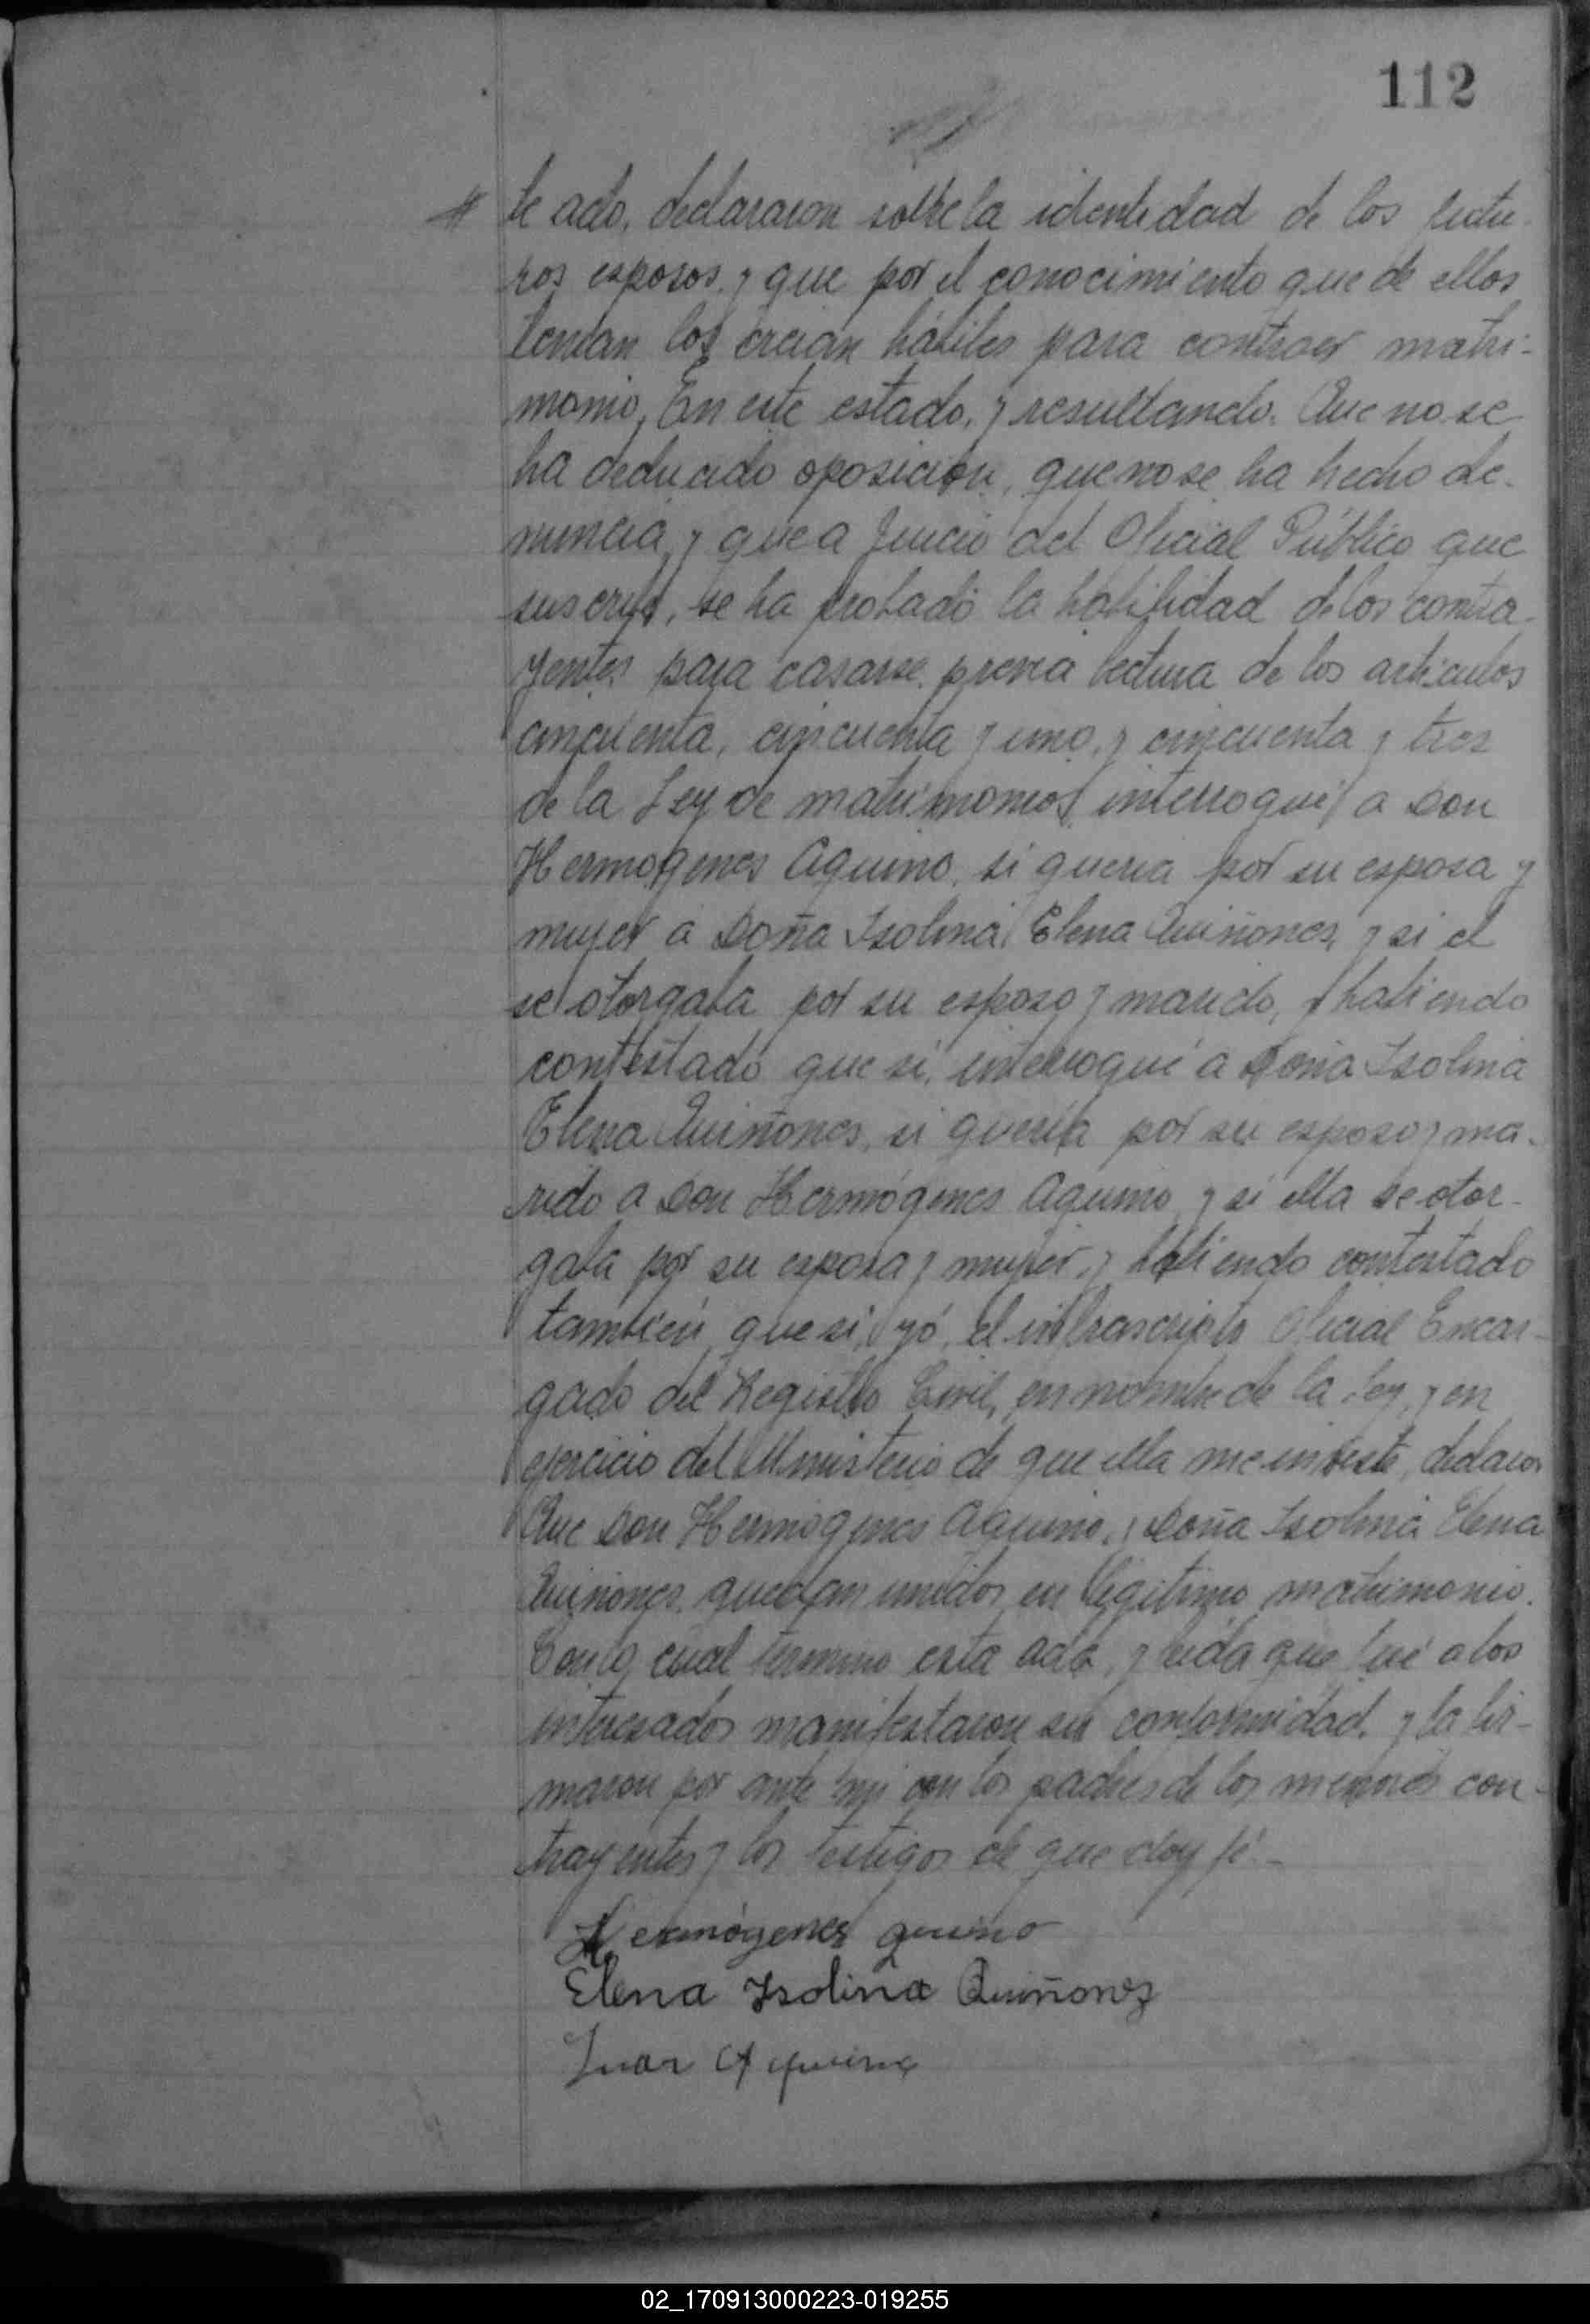 112
te acto, declararon sobre la identidad de los futu-
ros esposos, y que por el conocimiento que de ellos
tenían los creían hábiles para contraer matri-
monio, En este estado, y resultando: Que no se
ha deducido oposición, que no se ha hecho de-
nuncia, y que a juicio del Oficial Público que
suscribe, se ha probado la habilidad de los contra-
yentes para casarse, previa lectura de los artículos
cincuenta, cincuenta y uno, y cincuenta y tres
de la Ley de matrimonios, interrogué a Don
Hermógenes Aquino, si quería por su esposa y
mujer a Doña Isolina Elena Quiñones, y si el
se otorgaba por su esposo y marido, y habiendo
contestado que sí, interrogué a Doña Isolina
Elena Quiñones, si quería por su esposo y ma-
rido a Don Hermógenes Aquino, y si ella se otor-
gaba por su esposa y mujer, y habiendo contestado
también que sí, yó, el infrascripto Oficial Encar-
gado del Registro Civil, en nombre de la Ley, y en
ejercicio del Ministerio de que ella me inviste, declaro:
Que Don Hermógenes Aquino, y Doña Isolina Elena
Quiñones, quedan unidos en legítimo matrimonio.
Con lo cual termino esta acta, y leída que fué a los
interesados manifestaron su conformidad, y la fir-
maron por ante mí con los padres de los menores con-
trayentes y los testigos de que doy fé.-
Hermógenes Aquino
Elena Isolina Quiñonez
Juan Aquino
02_170913000223-019255